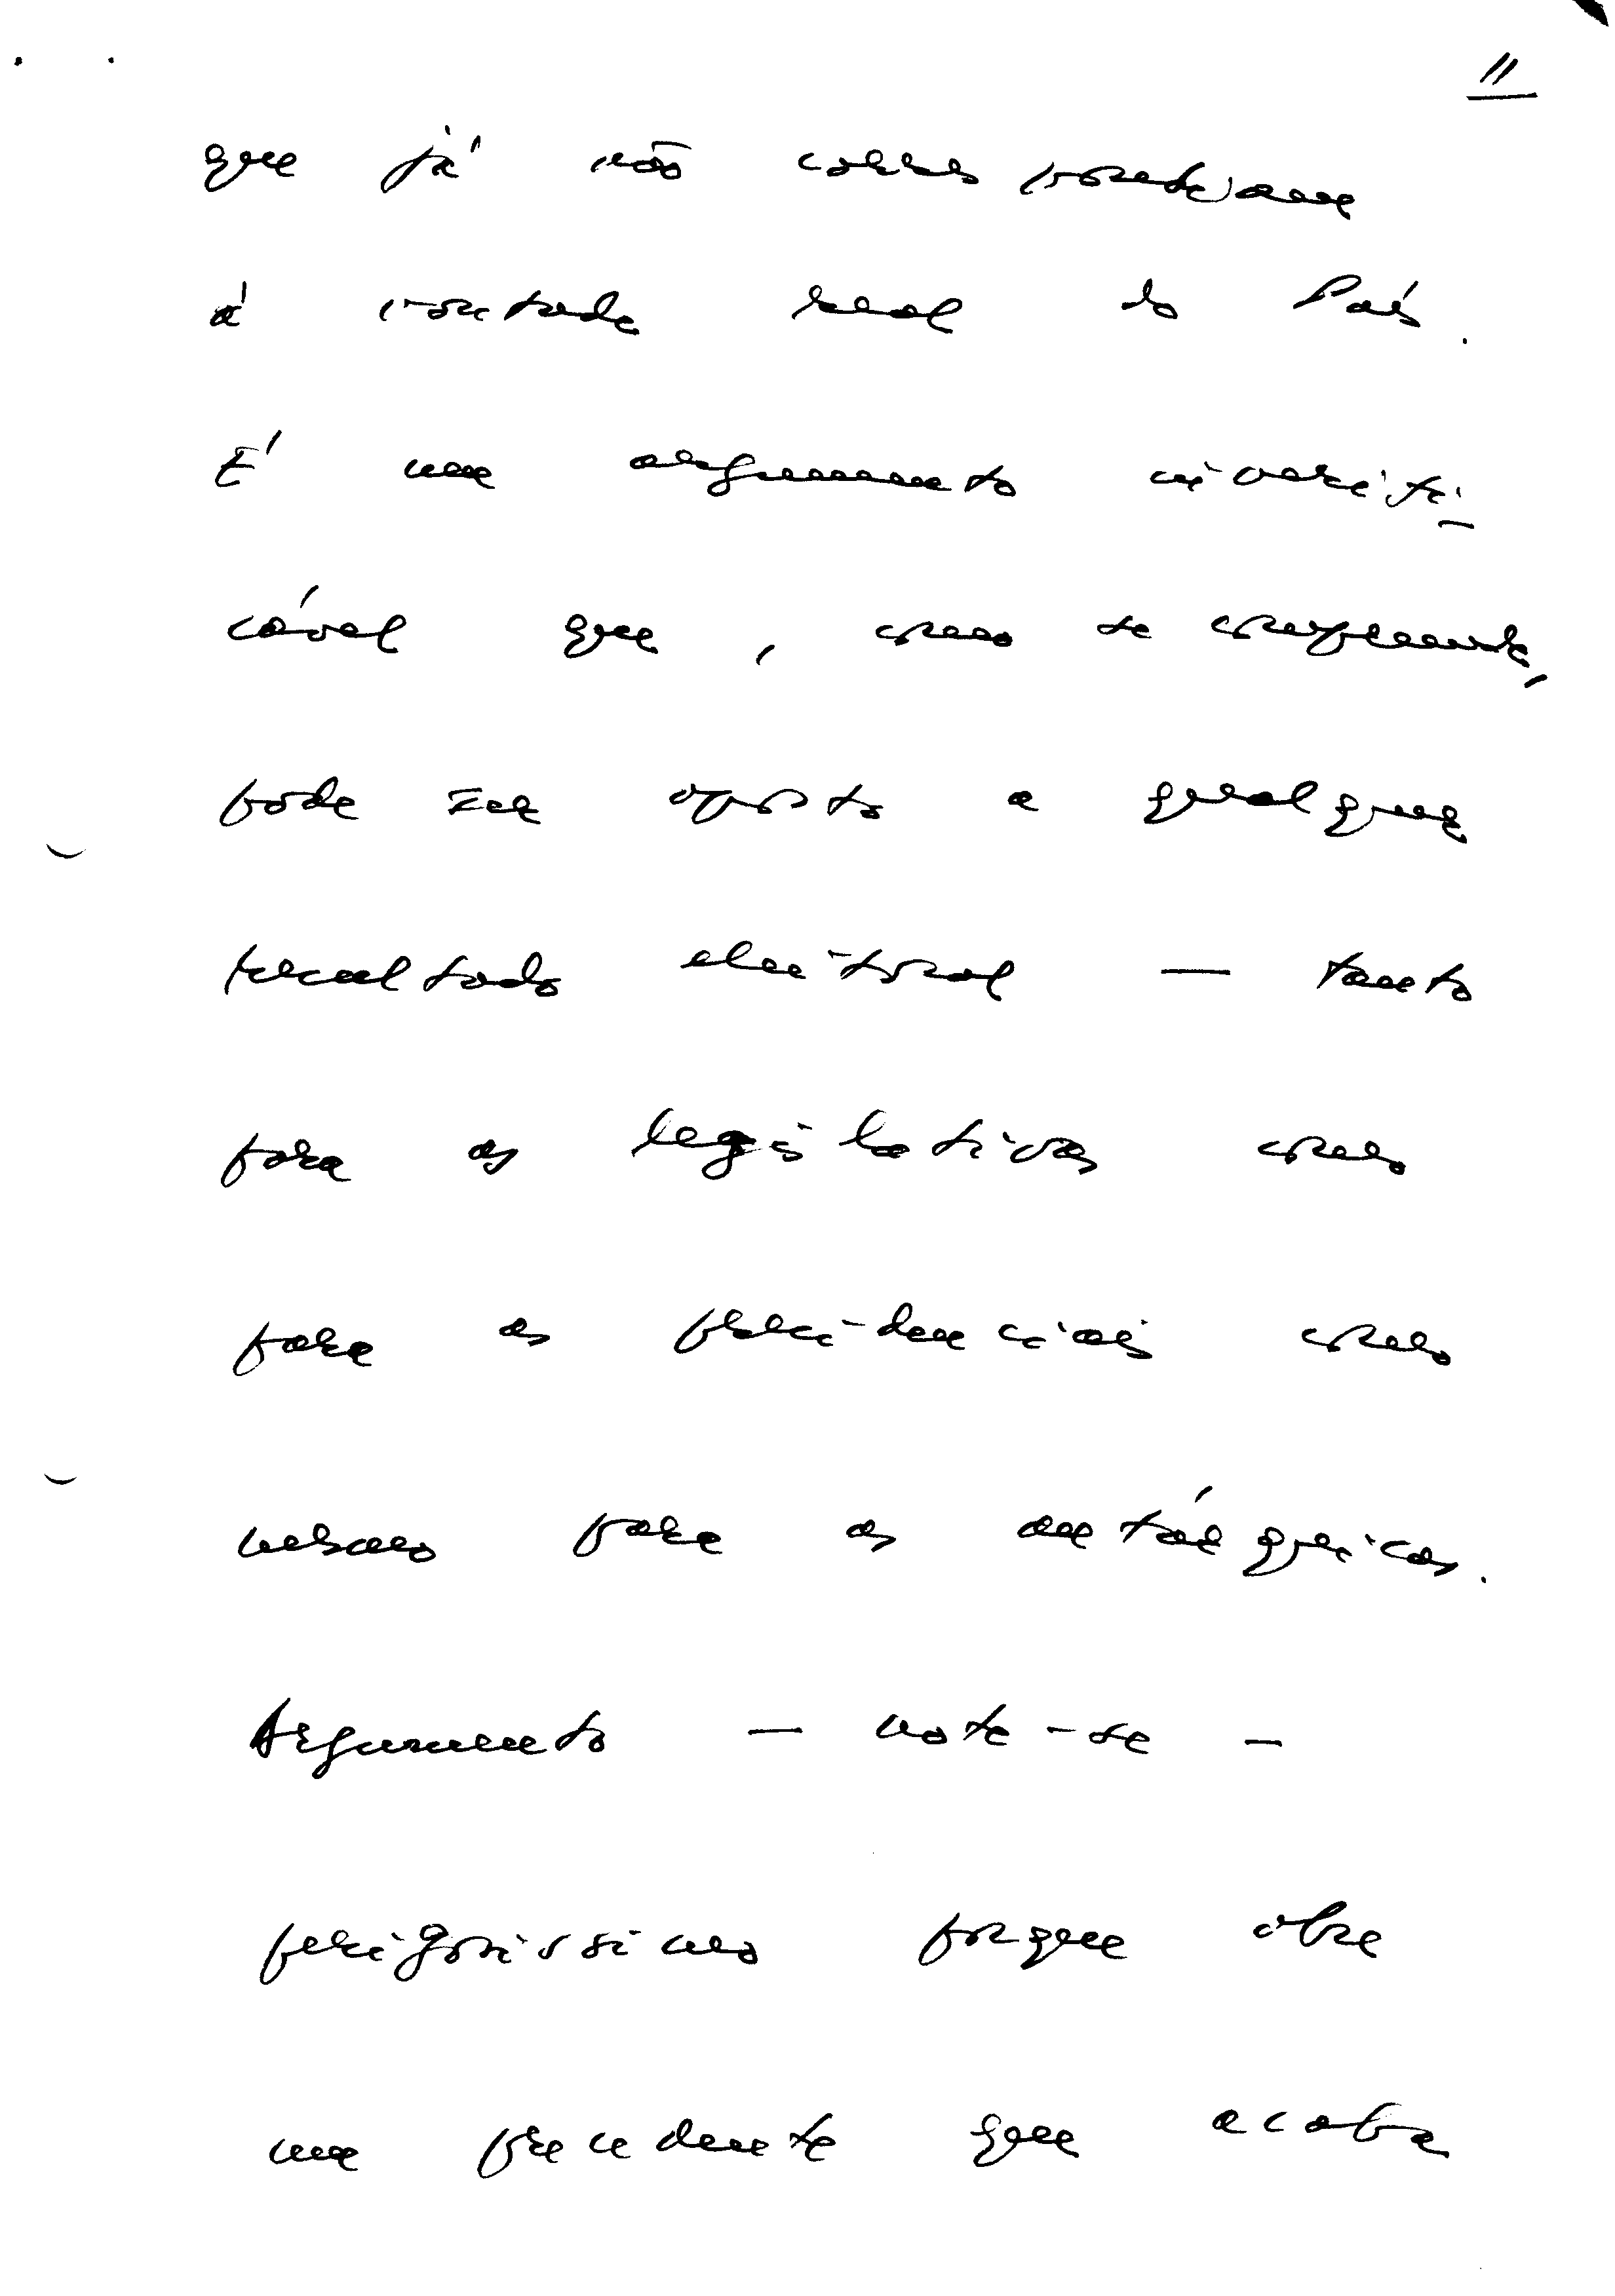 11
que já não correspondem
à vontade real do País.
É um argumento inverifi-
cável que, como se compreende,
pode ser oposto a qualquer
resultado eleitoral — tanto
para as legislativas como
para as presidenciais como
mesmo para as autárquicas.
Argumento — note-se —
perigosíssimo porque abre
um precedente que acaba